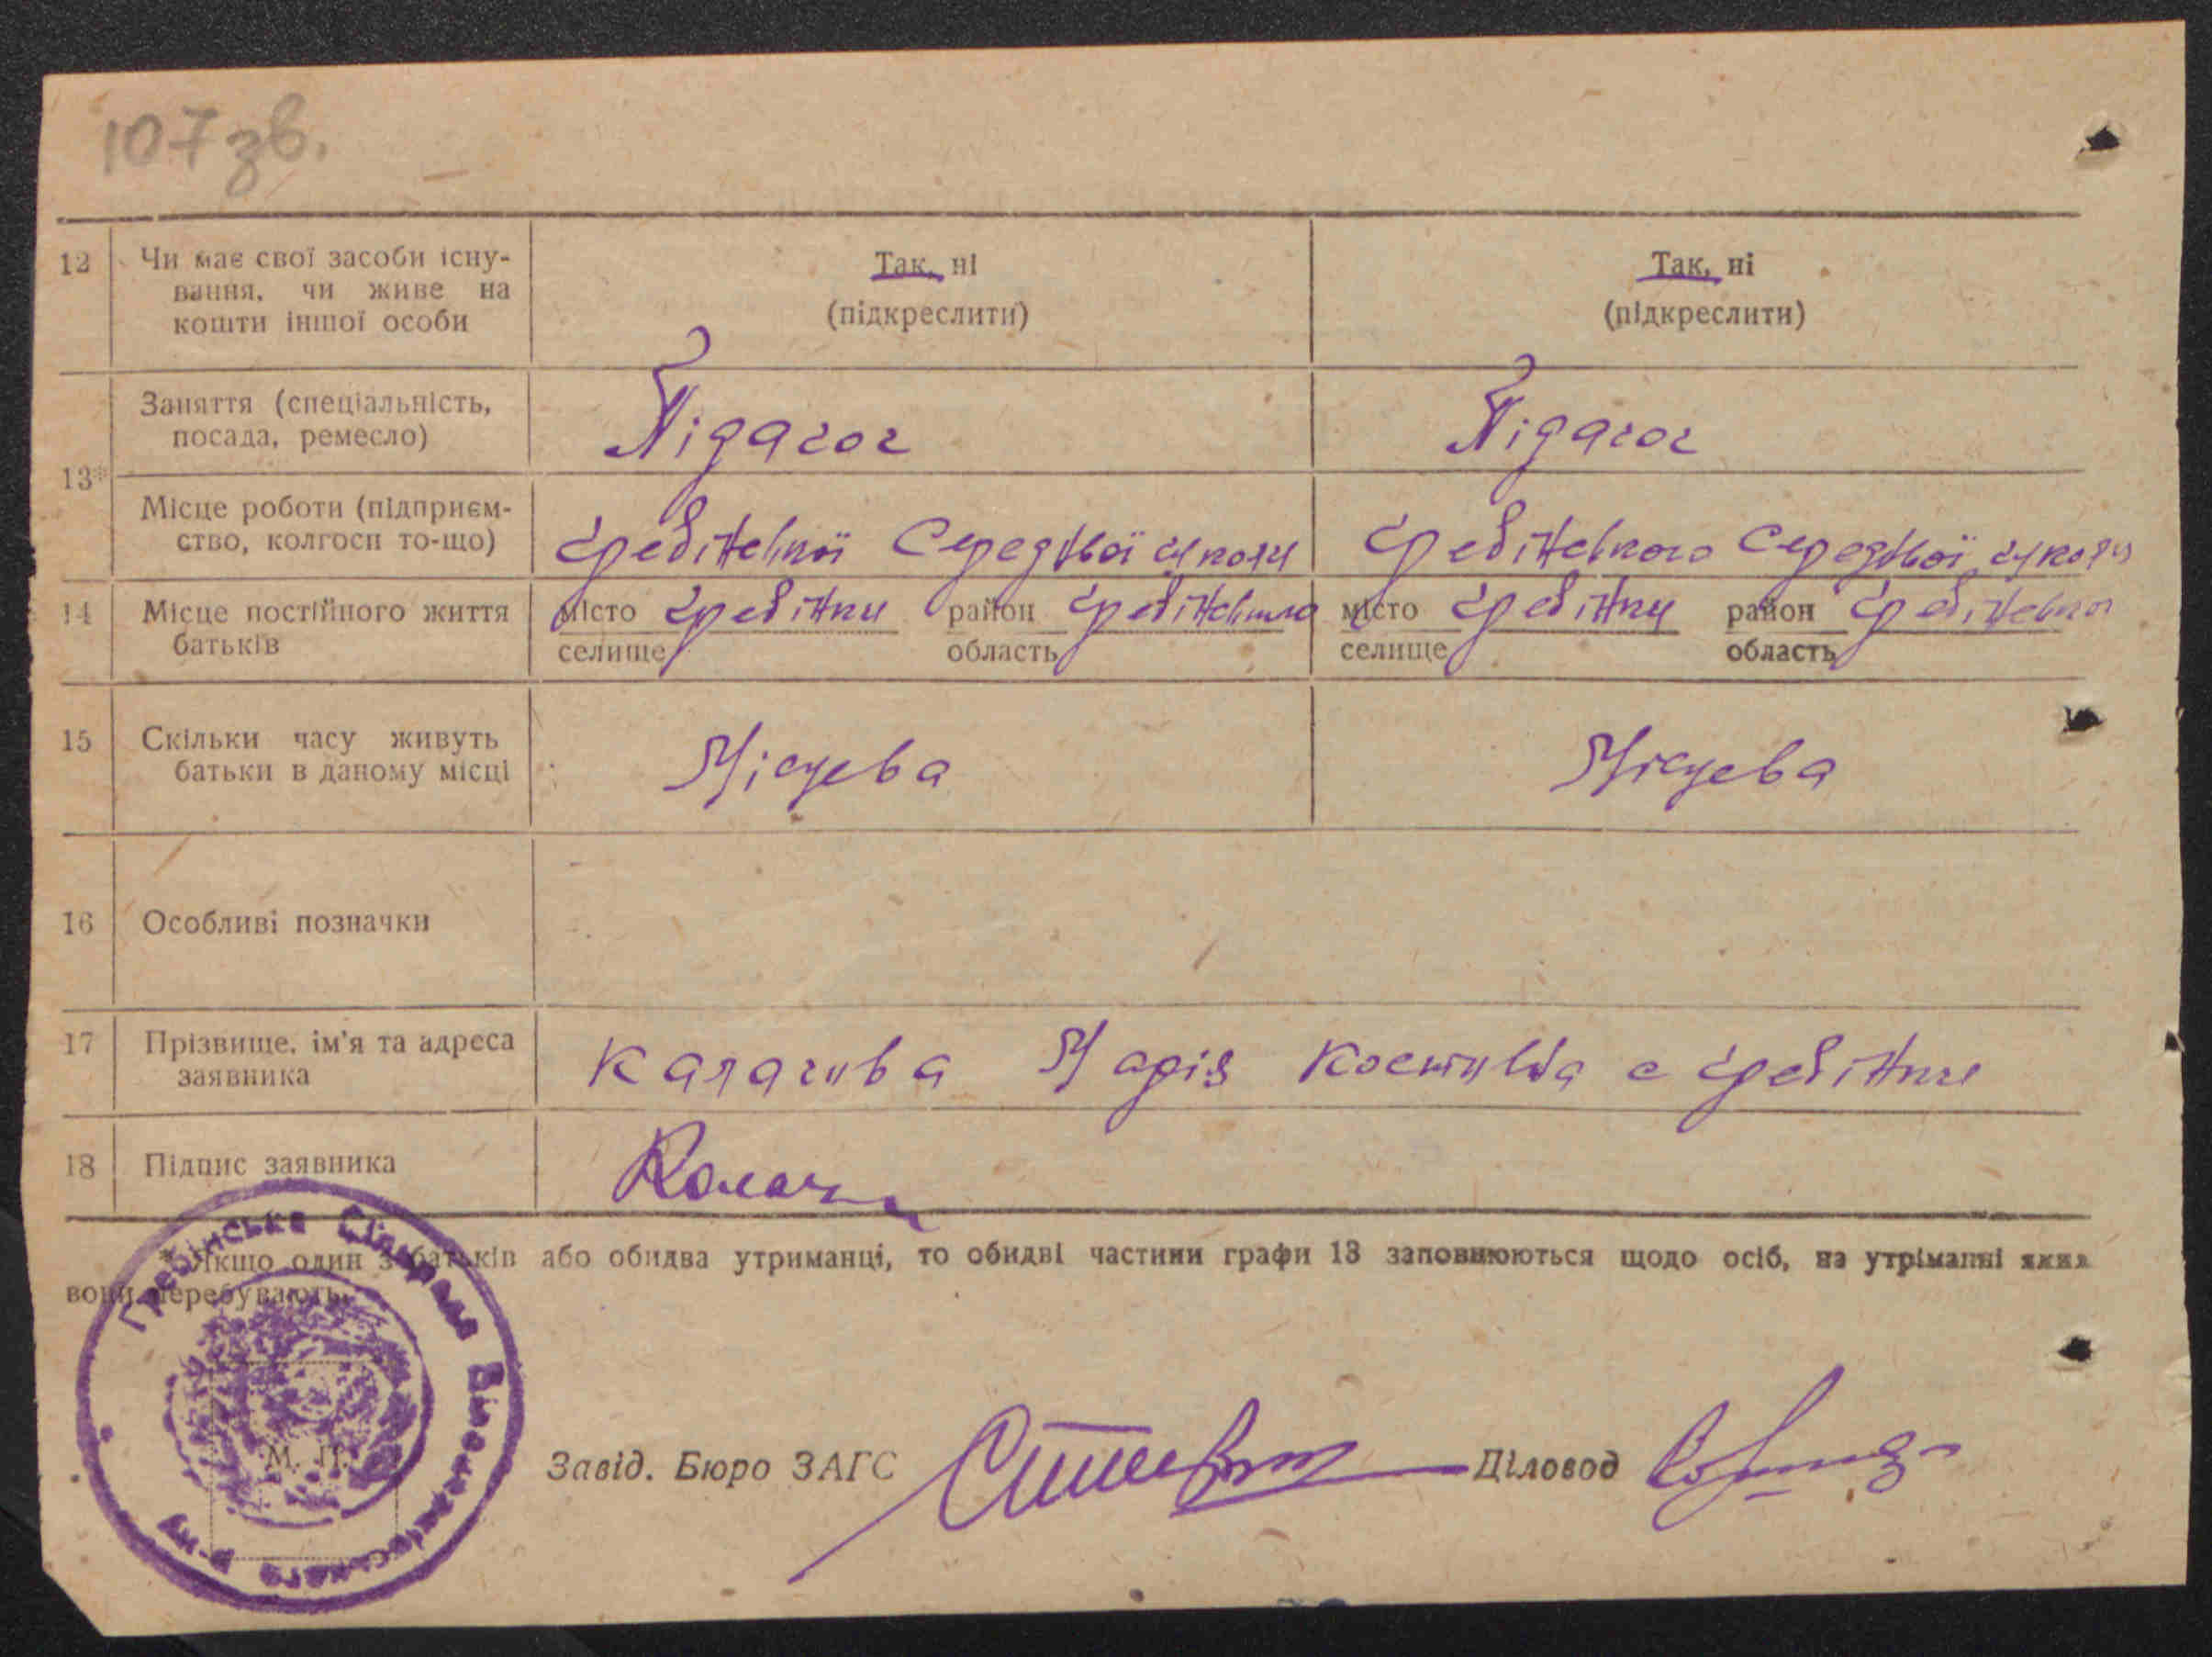 107 зв.
12 Чи має свої засоби існу-
вання, чи живе на
кошти іншої особи
Так, ні
(підкреслити)
Так, ні
(підкреслити)
13*
Заняття (спеціальність,
посада, ремесло)
Підагог
Підагог
Місце роботи (підприєм-
ство, колгосп то-що)
Гребінської Середньої школи
Гребінського Середньої школи
14 Місце постійного життя
батьків
місто Гребінки район Гребінського
селище область
місто Гребінки район
селище область
15 Скільки часу живуть
батьки в даному місці
Місцева
Місцева
16 Особливі позначки
17 Прізвище, ім'я та адреса
заявника
Марія с Гребінки
18 Підпис заявника
* Якщо один з батьків або обидва утриманці, то обидві частини графи 13 заповнюються щодо осіб, на утріманні яких
вони перебувають.
Гребінська Сільрада Білоцерківського р-ну
М. П.
Завід. Бюро ЗАГС
Діловод